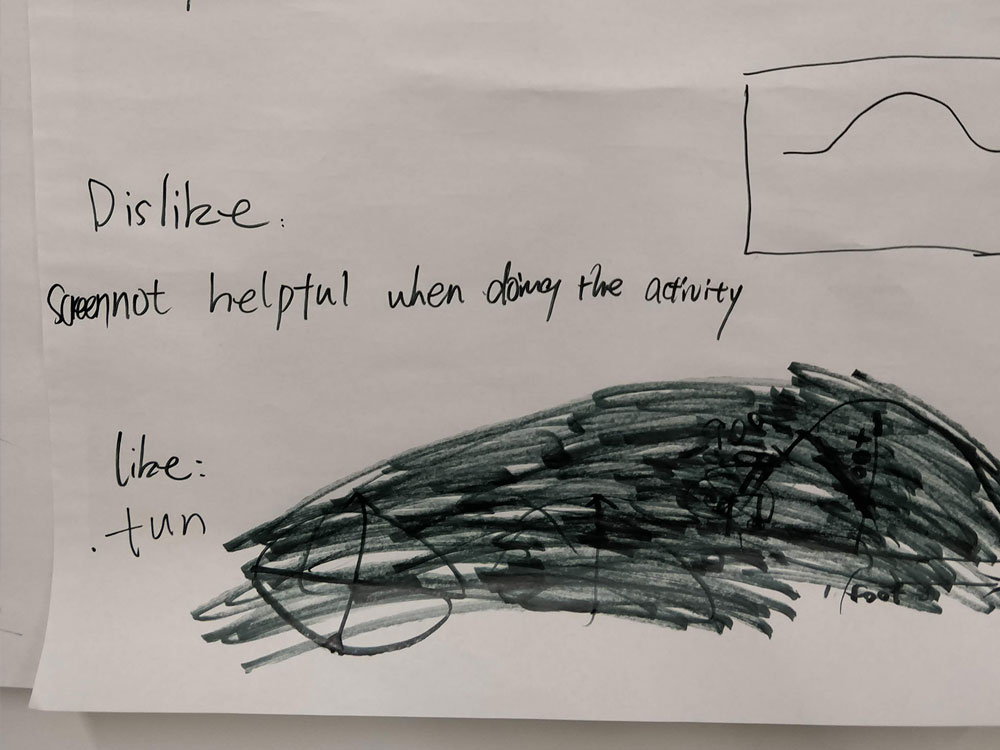 Dislike:
Screen not helpful when doing the activity
like:
. fun
foot